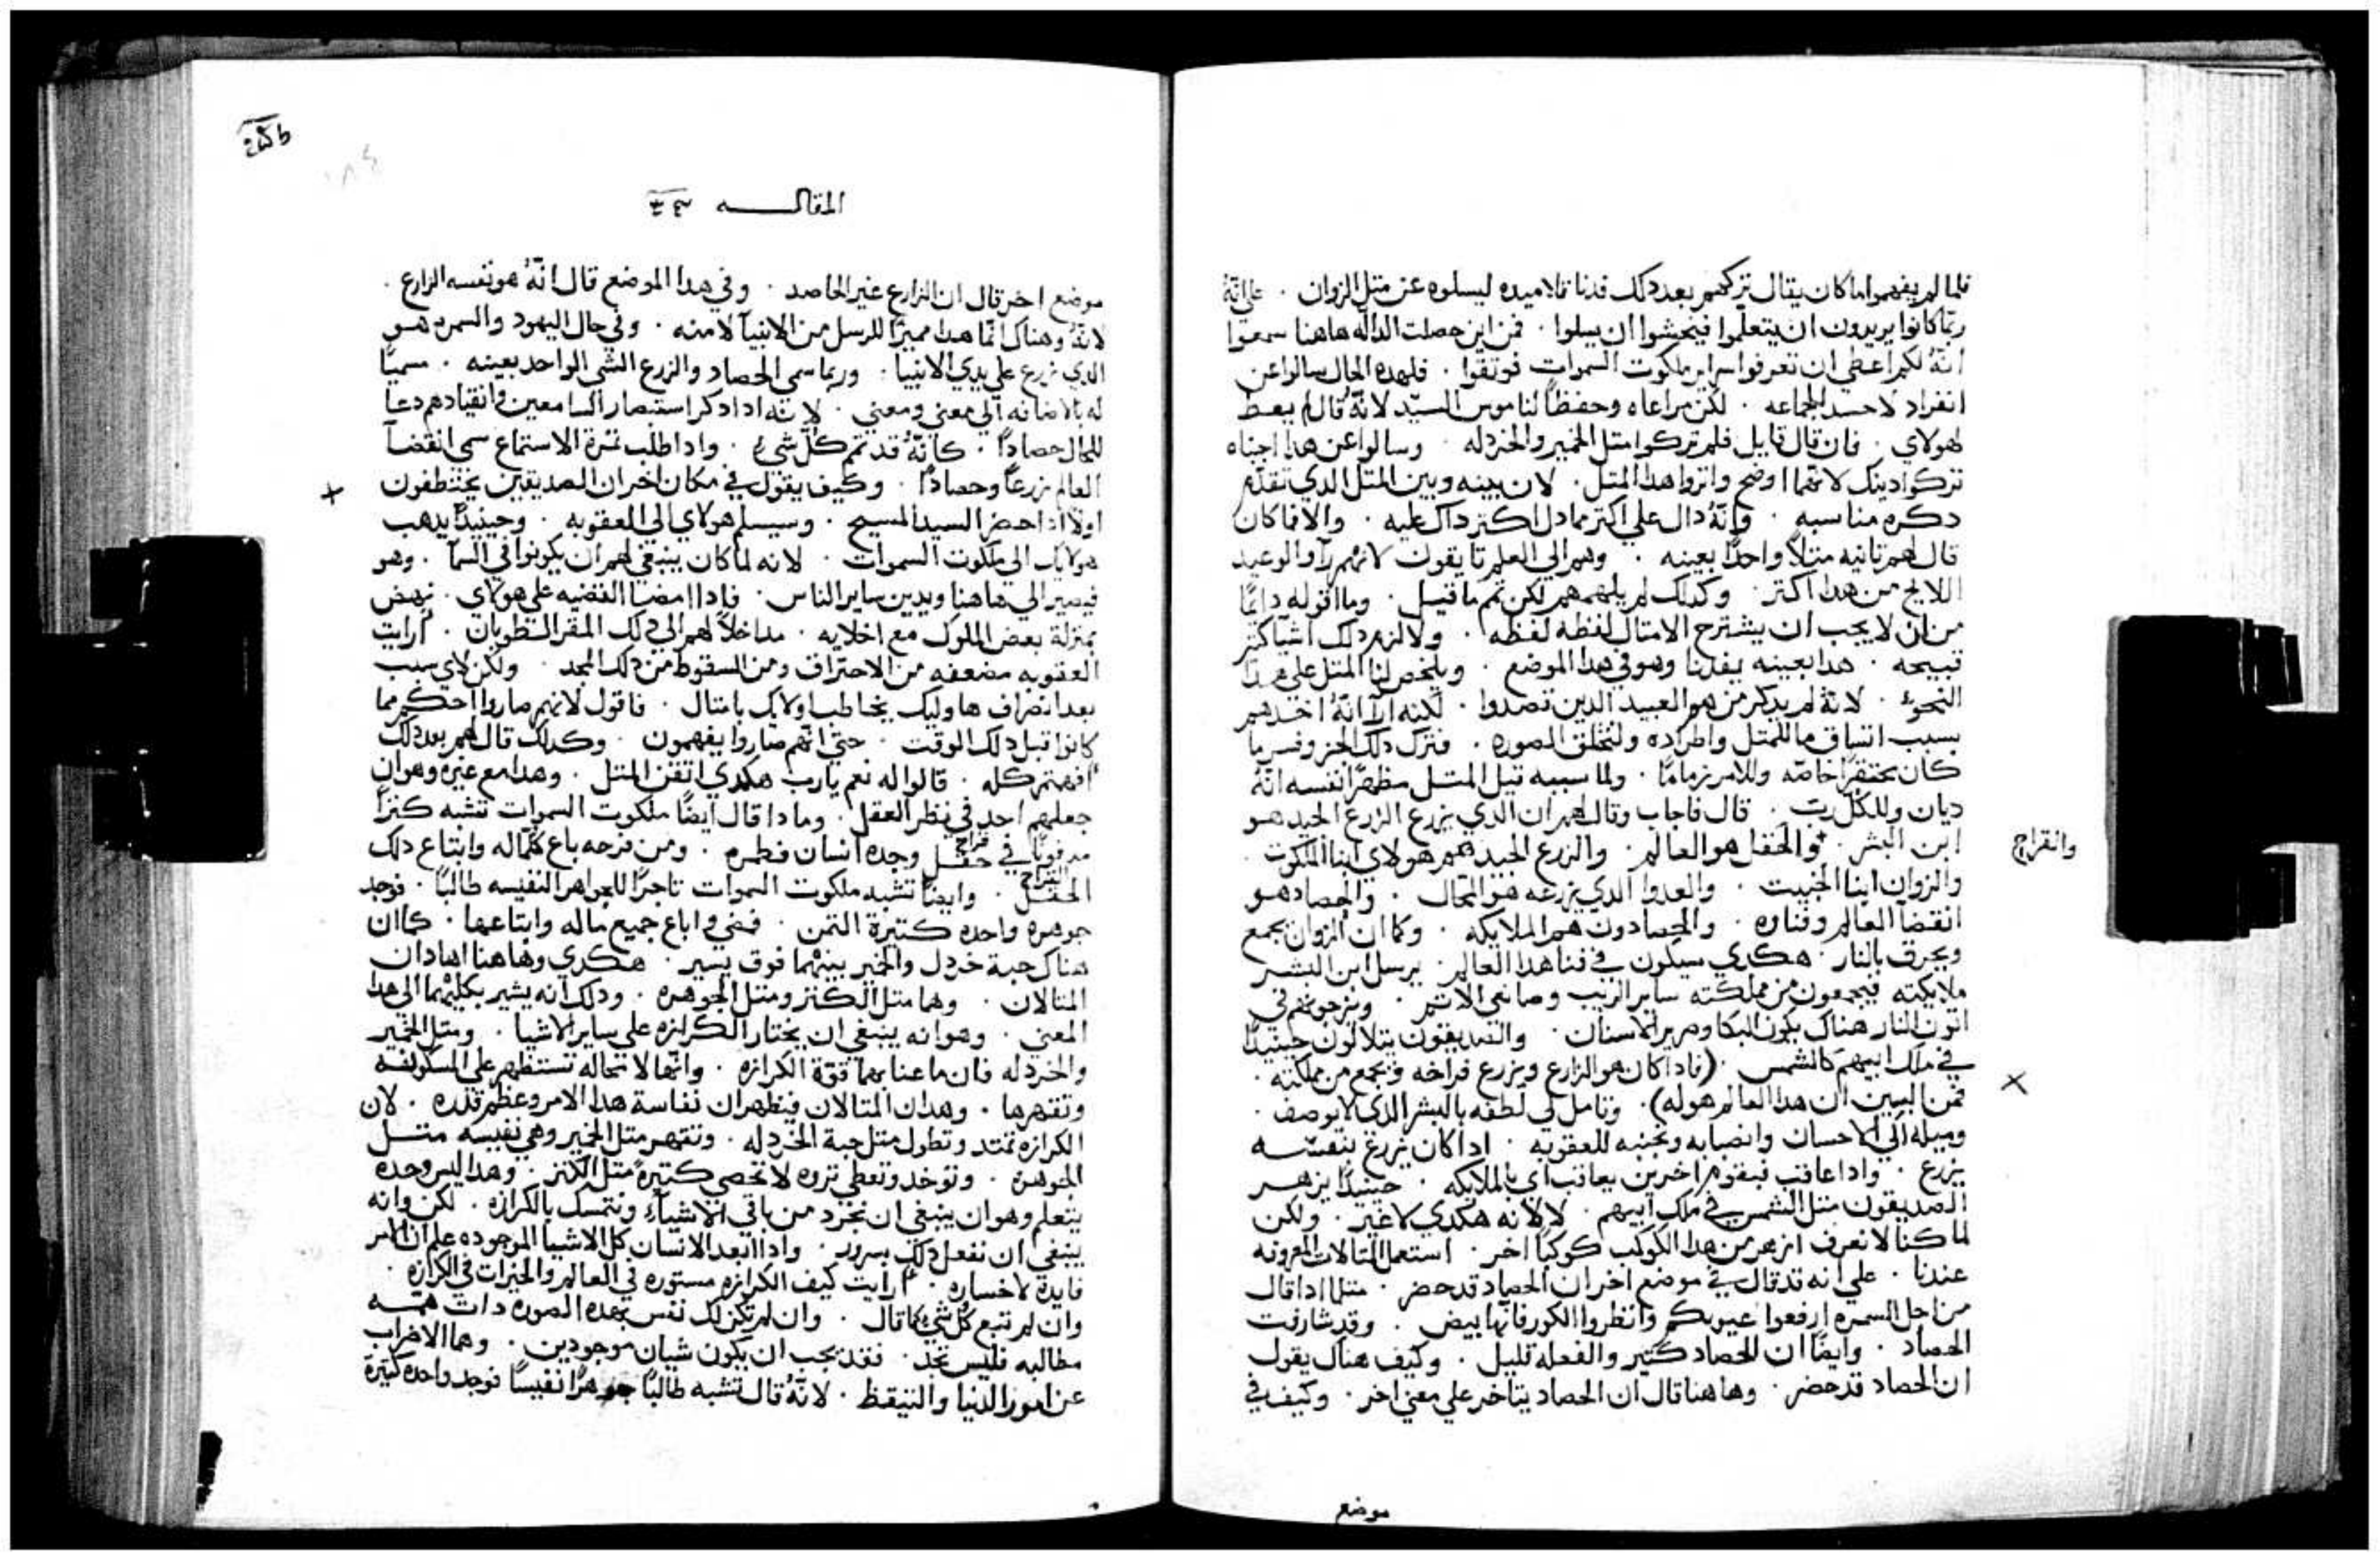 فلما لم يفهموا ما كان يقال تركهم بعد دلك فدنا تلاميده ليسلوه عن متل الزوان . علي انّهُ
ربّما كانوا يريدون ان يتعلّموا فيخشوا ان يسلوا . فمن اين حصلت الدالّه هاهنا سمعوا
انّهُ لكم اعطي ان تعرفوا سراير ملكوت السموات فوتقوا . فلهده الحال سالوا عن
انفراد لا حسد للجماعه . لكن مراعاه وحفظاً لناموس السيّد لانّهُ قال لم يعط
لهولاي . فان قال قايل فلم تركوا متل الخمير والخردله . وسالوا عن هدا اجبناه
تركوا دينك لانّهما اوضح واتروا هدا المتل . لان بينه وبين المتل الدي تقدّم
دكره مناسبه . وانّهُ دال علي اكتر مما دل اكتر داك عليه . والا فما كان
قال لهم تانيه متلاً واحداً بعينه . وهم الي العلم تايقون لانهم راوا الوعيد
اللايح من هدا اكتر . وكدلك لم يلمهم لكن تمم ما قيل . وما اقوله دايمًا
من ان لا يجب ان يشترح الامتال لفظه لفظه . ولا لزم دلك اشيا كتير
قبيحه . هدا بعينه يفدنا وهو في هدا الموضع . ويلخص لنا المتل علي هدا
النحوُ . لانّهُ لم يدكر من هو العبيد الدين تصدوا . لكنه اراانهُ اخدهم
بسبب اتساق ما للمتل واطراده ولتخلق الصوره . فترك دلك الجز وفسر ما
كان محتقراً خاصّه وللامر زماماً . ولما سببه قيل المتل مظهراً نفسه انّهُ
ديان وللكل ربّ . قال فاجاب وقال لهم ان الدي يزرع الزرع الجيد هو
ابن البشر . والحقل هو العالم . والزرع الجيد هم هولاي ابنا الملكوت .
وانقراح
والزوان ابنا الخبيت . والعدوا الدي يزرعه هو المحال . والحصاد هو
انقضا العالم وفناوه . والحصادون هم الملايكه . وكما ان الزوان يجمع
ويحرق بالنار . هكدي سيكون في فنا هدا العالم . يرسل ابن البشر
ملايكته فيجمعون من مملكته ساير الريب وصانعي الاتم . ويزجونهم في
اتون النار هناك يكون البكا وصرير الاسنان . والصديقون يتلالون حينيداً
في ملك ابيهم كالشمس . (فادا كان هو الزارع ويزرع قراحه ويجمع من مملكته .
فمن البين ان هدا العالم هو له) . وتامل لي لطفه بالبشر الدي لا يوصف .
وميله الي الاحسان وانصبابه وتجنبه للعقوبه . ادا كان يزرع بنفسه
يزرع . وادا عاقب فبقوم اخرين يعاقب اي بالملايكه . حينيداً يزهر
الصديقون متل الشمس في ملك ابيهم . لا لانه هكدي لا غير . ولكن
لما كنا لا نعرف ازهر من هدا الكوكب كوكباً اخر . استعمل المتالات المعروفه
عندنا . علي انه قد قال في موضع اخر ان الحصاد قد حضر . متل ادا قال
من اجل السمره ارفعوا عيونكم وانظروا الكور فانها بيض . وقد شارفت
الحصاد . وايضًا ان للحصاد كتير والفعله قليل . وكيف هناك يقول
ان الحصاد قد حضر . وهاهنا قال ان الحصاد يتاخر علي معني اخر . وكيف في
موضع
المقالـــه
موضع اخر قال ان الزارع غير الحاصد . وفي هدا الموضع قال انّهُ هو نفسه الزارع .
لانّهُ وهناك انّما هدا مميزاً للرسل من الانبيآ لا منه . وفي حال اليهود والسمره هو
الدي زرع علي يدي الانبيا . وربما سمي الحصاد والزرع الشي الواحد بعينه . مسميًا
له بالاضافه الي معني ومعني . لانّه ادا دكر استبصار السامعين وانقيادهم دعا
للحال حصاداً . كانّهُ قد تمم كلّ شيءُ . وادا طلب تمرة الاستماع سمي انقضآ
العالم زرعاً وحصاداً . وكيف يقول في مكان اخر ان الصديقين يختطفون
اولا ادا حضر السيد المسيح . وسيسلم هولاي الي العقوبه . وحينيداً يدهب
هولايك الي ملكوت السموات . لانه لما كان ينبغي لهم ان يكونوا في السمآ . وهو
فيصير الي هاهنا ويدين ساير الناس . فادا امضا القضيه علي هولاي . نهض
بمنزلة بعض الملوك مع اخلايه . مداخلاً لهم الي دلك المقر الطوبان . ارايت
العقوبه مضعفه من الاحتراق ومن السقوط من دلك المجد . ولكن لاي سبب
بعد انصراف هاوليك يخاطب اولايك بامتال . فاقول لانهم صاروا احكم مما
كانوا قبل دلك الوقت . حتّي انّهم صاروا يفهمون . وكدلك قال لهم بعد دلك
افهمتم كله . قالوا له نعم يارب هكدي اتقن المتل . وهدا مع غيره وهو ان
جعلهم احد في نظر العقل . وما دا قال ايضًا ملكوت السموات تشبه كنزاً
مدفوناً في حقـل وجده انسان فطمره . ومن فرحه باع كلّما له وابتاع دلك
قراح
الحقـل . وايضًا تشبه ملكوت السموات تاجراً للجواهر النفيسه طالباً . فوجد
القراح
جوهره واحده كتيرة التمن . فمضي واباع جميع ماله وابتاعها . كما ان
هناك حبة خردل والخمير بينهما فوق يسير . هكدي وهاهنا اهادان
المتالان . وهما متل الكنز ومتل الجوهره . ودلك انه يشير بكليهما الي هدا
المعني . وهو انه ينبغي ان يختار الكرازه علي ساير الاشيا . ومتل الخمير
والخردله فان ما عنا بهما قوة الكرازه . وانّها لا محاله تستظهر علي المسكونه
وتقهرها . وهدان المتالان فيظهران نفاسة هدا الامر وعظم قدره . لان
الكرازه تمتد وتطول متل حبة الخردله . وتقهر متل الخمير وهي نفيسه متـل
الجوهره . وتوخد وتعطي تروه لا تحصي كتيرة متل الكنز . وهدا ليس وحده
يتعلم وهو ان ينبغي ان نتجرد من باقي الاشيآءِ ونتمسك بالكرازه . لكن وانه
ينبغي ان نفعل دلك بسرور . وادا ابعد الانسان كل الاشيا الموجوده علم ان الامر
فايدة لا خساره . ارايت كيف الكرازه مستوره في العالم والخيرات في الكرازه .
وان لم تبع كل شي كما قال . وان لم تكن لك نفس بهده الصوره دات همّـه
مطالبه فليس تجد . فقد يجب ان يكون شيان موجودين . وهما الاضراب
عن امور الدنيا والتيقظ . لانّهُ قال تشبه طالباً جوهراً نفيساً فوجد واحده كتيرة